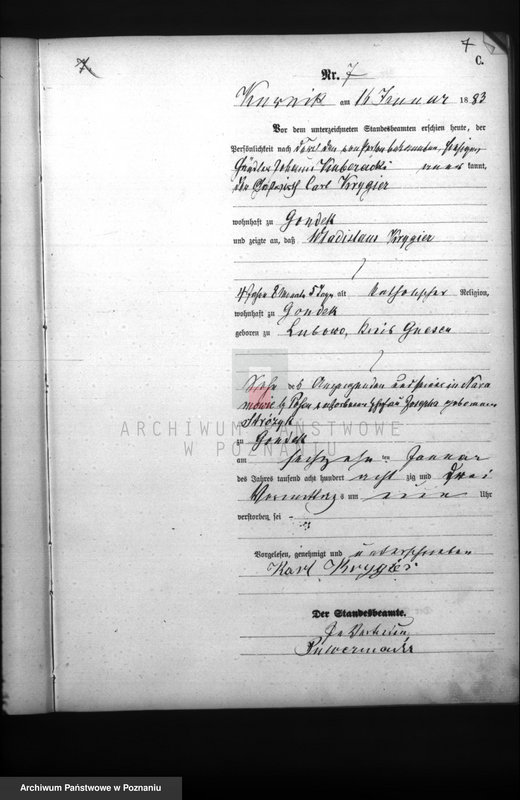 7
7.
C.
Nr. 7
Kurnik am 16 Januar 1883
Vor dem unterzeichneten Standesbeamten erschien heute, der
Persönlichkeit nach durch den
Johann kannt,
der Carl Krygier
wohnhaft zu Gondek
und zeigte an, daß Wladislaus Krygier
4 Jahre 8 Monate 5 Tage alt katholischer Religion,
wohnhaft zu Gondek
geboren zu Lubowo, Kreis Gnesen
Sohn des Anzeigenden und seiner in
bei Posen verstorbenen Ehefrau Josepha geborenen
zu Gondek
am sechzehn ten Januar
des Jahres tausend acht hundert acht zig und drei
Vormittags um ein Uhr
verstorben sei
Vorgelesen, genehmigt und unterschrieben
Karl Krygier
Der Standesbeamte.
In Vertretung
ARCHIWUM PAŃSTWOWE
W POZNANIU
Archiwum Państwowe w Poznaniu